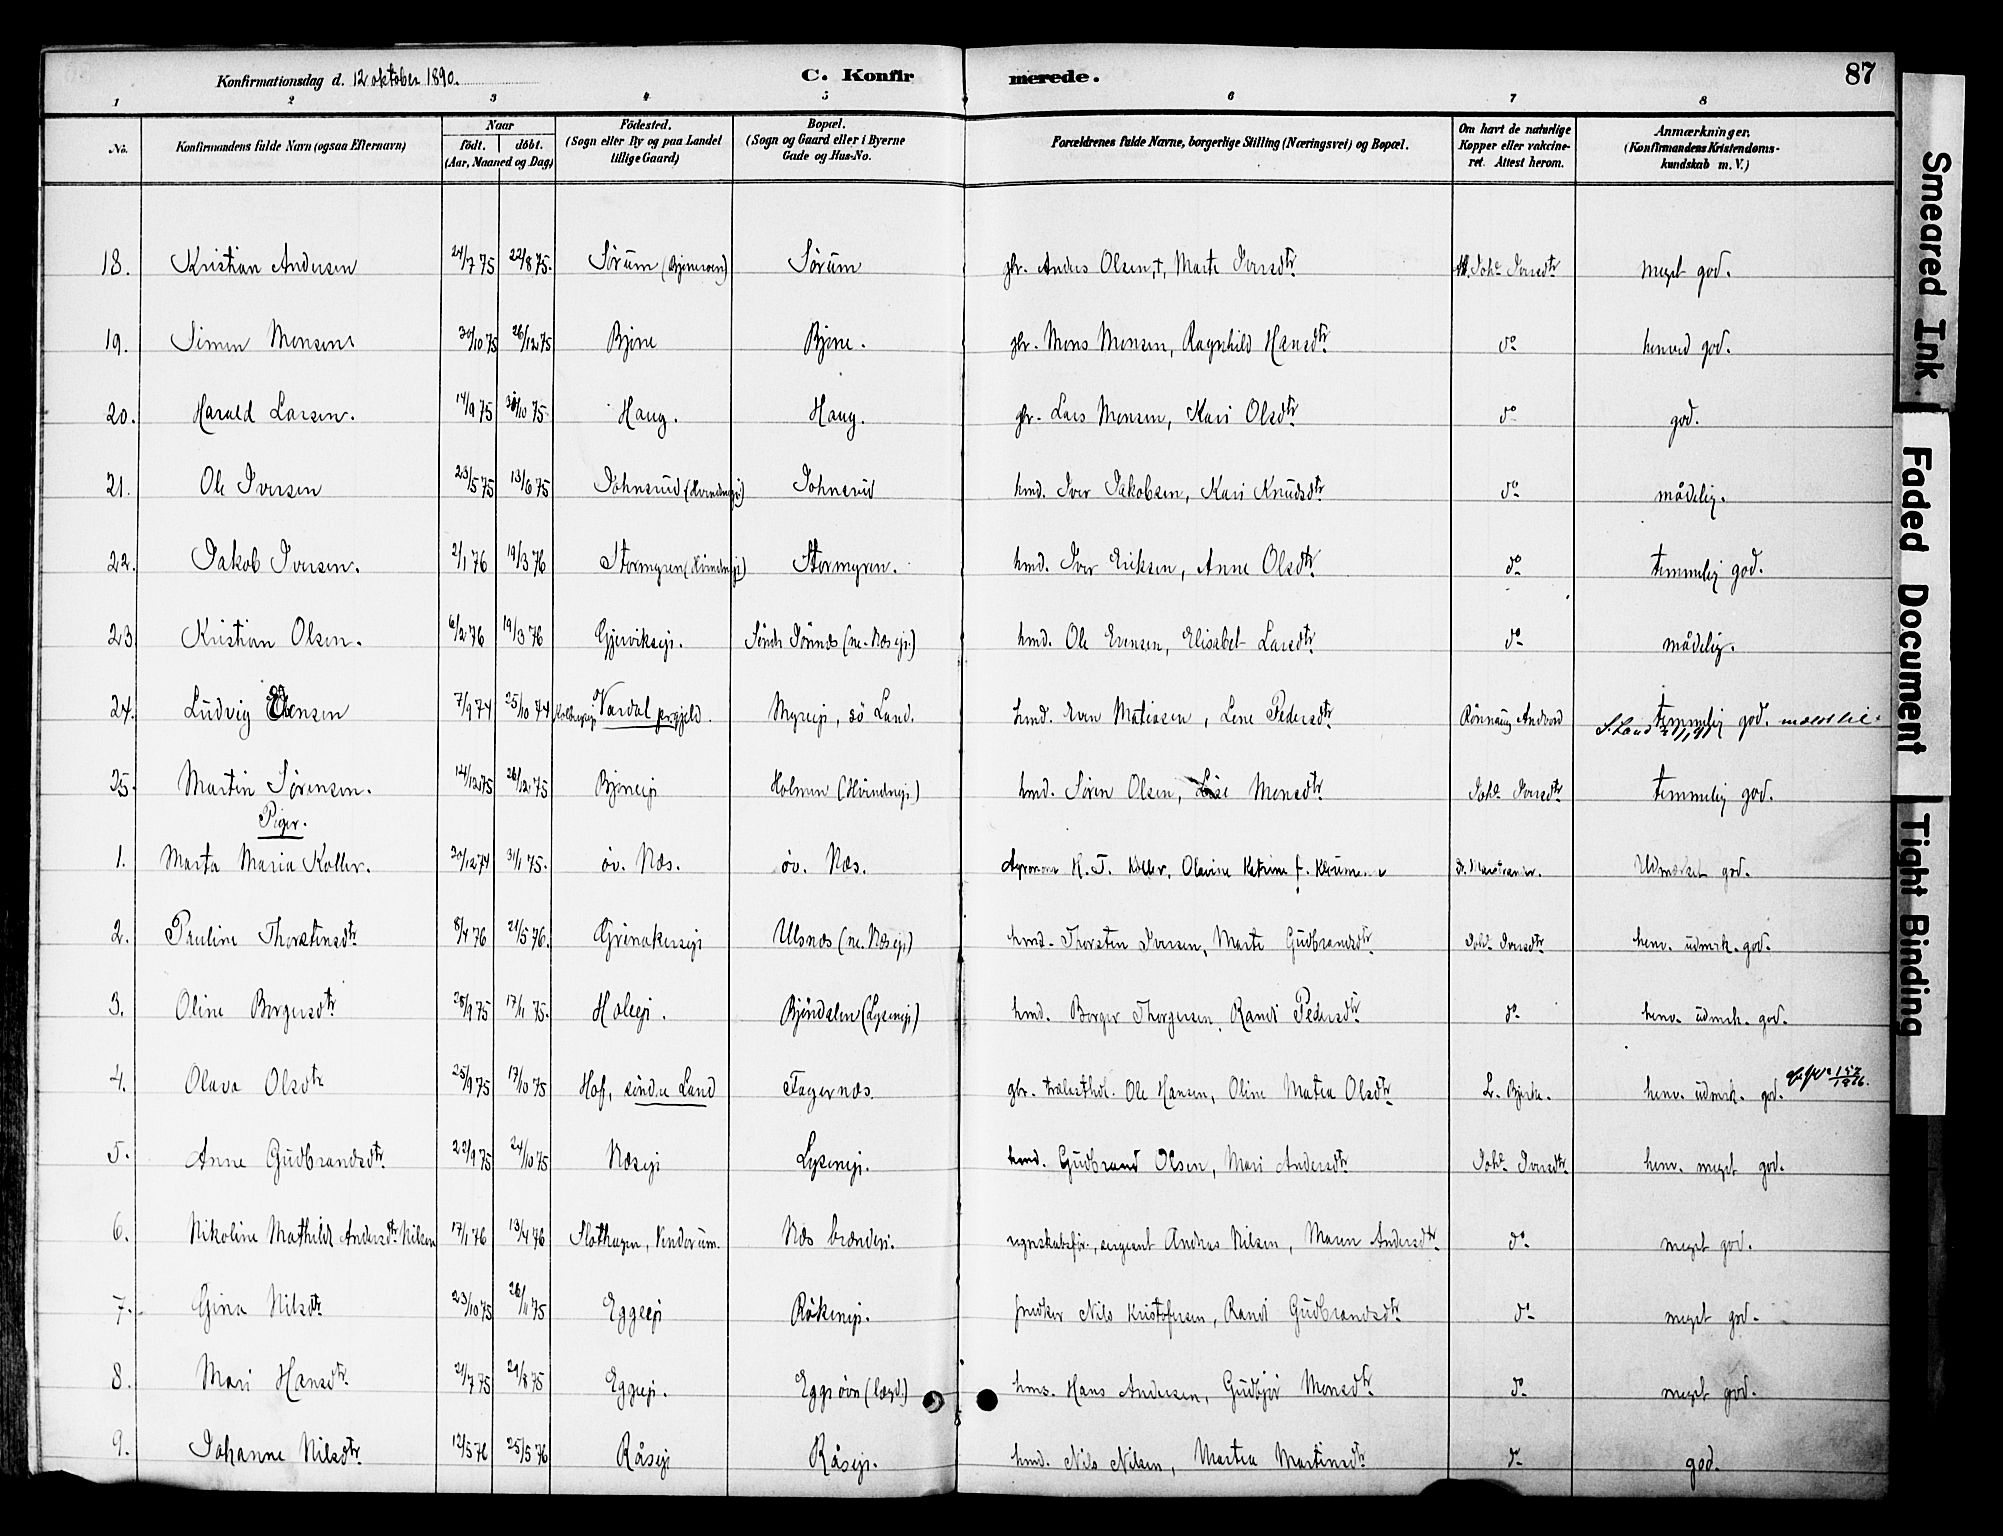 Konfirmationsdag d. 12 oktober 1890. C. Konfirmerede. 87
1 2 3 4 5 6 7 8
No. Konfirmandens fulde Navn (ogsaa Efternavn) Naar født. døbt. (Aar, Maaned og Dag) Fødested. (Sogn eller By og paa Landet tillige Gaard) Bopæl. (Sogn og Gaard eller i Byerne Gade og Hus-No. Forældrenes fulde Navne, borgerlige Stilling (Næringsvei) og Bopæl. Om havt de naturlige Kopper eller vakcineret. Attest herom. Anmærkninger. (Konfirmandens Kristendomskundskab m. V.)
18. Kristian Andersen 24/7 75 22/8 75. Sørum (Bjoneroen) Sørum gbr. Anders Olsen †, Marte Iversdtr. Joh. Iversdtr meget god.
19. Simen Monsen 30/10 75 26/12 75 Bjone Bjone. gbr. Mons Monsen, Ragnhild Hansdtr. do henved god.
20. Harald Larsen. 14/9 75 /10 75. Haug. Haug. gbr. Lars Monsen, Kari Olsdtr. do god.
21. Ole Iversen 23/5 75 13/6 75 Johnsrud (Hvindnej) Johnsrud hmd. Iver Jakobsen, Kari Knudsdtr do mådelig.
22. Jakob Iversen. 2/1 76 19/3 76 Stormyren (Hvindnej) Stormyren. hmd. Iver Eriksen, Anne Olsdtr. do temmelig god.
23 Kristian Olsen. 6/2 76 19/3 76 Gjerviksej. Søndr Tønnes (ne. Næsej.) hmd. Ole Evensen, Elisabet Larsdtr do mådelig.
24. Ludvig Evensen 7/9 74 25/10 74 Vardal prgjeld. Myrej, sø Land. hmd. Even Matiasen, Lene Pedersdtr Rønnaug Andvord temmelig god. meldt til
S. Land
25. Martin Sørensen. 14/12 75 26/12 75 Bjonej Holmen (Hvindnej) hmd. Søren Olsen, Lise Monsdtr. Joh. Iversdtr. temmelig god.
Piger.
1. Marta Maria Koller. 20/12 74 31/1 75. øv. Næs. øv. Næs. Agronom H. T. Koller, Olavine Katrine f. dr. Udmærket god.
2. Pauline Thorstensdtr 8/4 76 21/5 76. Grinakersej Ulsnæs (ne. Næsej) hmd. Thorsten Iversen, Marte Gudbrandsdtr Joh. Iversdtr henv. udmrk. god.
3. Oline Borgersdtr 25/9 75 17/11 75. Holeej. Bjøndalen (Lysenej) hmd. Borger Thorgersen, Randi Pedersdtr do henv. udmrk. god.
4. Olava Olsdtr 25/9 75 17/10 75 Hof, søndre Land Fagernæs. gbr. Ole Hansen, Oline Matea Olsdtr. L. Bjerke. henv. udmrk. god.
5. Anne Gudbrandsdtr. 22/9 75 24/10 75 Næsej Lysenej. hmd. Gudbrand Olsen, Mari Andersdtr Joh. Iversdtr. henv. meget god.
6. Nikoline Mathilde Andersdtr. Nilsen 17/1 76 13/4 76 Slothagen, Vindorum. Næs brænderi. regnskabsfør., sergeant Andreas Nilsen, Maren Andersdtr. do meget god.
7. Gina Nilsdtr 23/10 75 28/11 75 Eggeej Råkenej. snedker Nils Kristofersen, Randi Gudbrandsdtr do meget god.
8. Mari Hansdtr. 21/7 75 29/8 75 Eggeej. Egge øvn (lægd.) hms. Hans Andersen, Gudbjør Monsdtr. do meget god.
9. Johanne Nilsdtr. 12/5 76 25/5 76 Råsej Råsej. hmd. Nils Nilsen, Martea Martinsdtr. do god.
Smeared Ink
Faded Document
Tight Binding